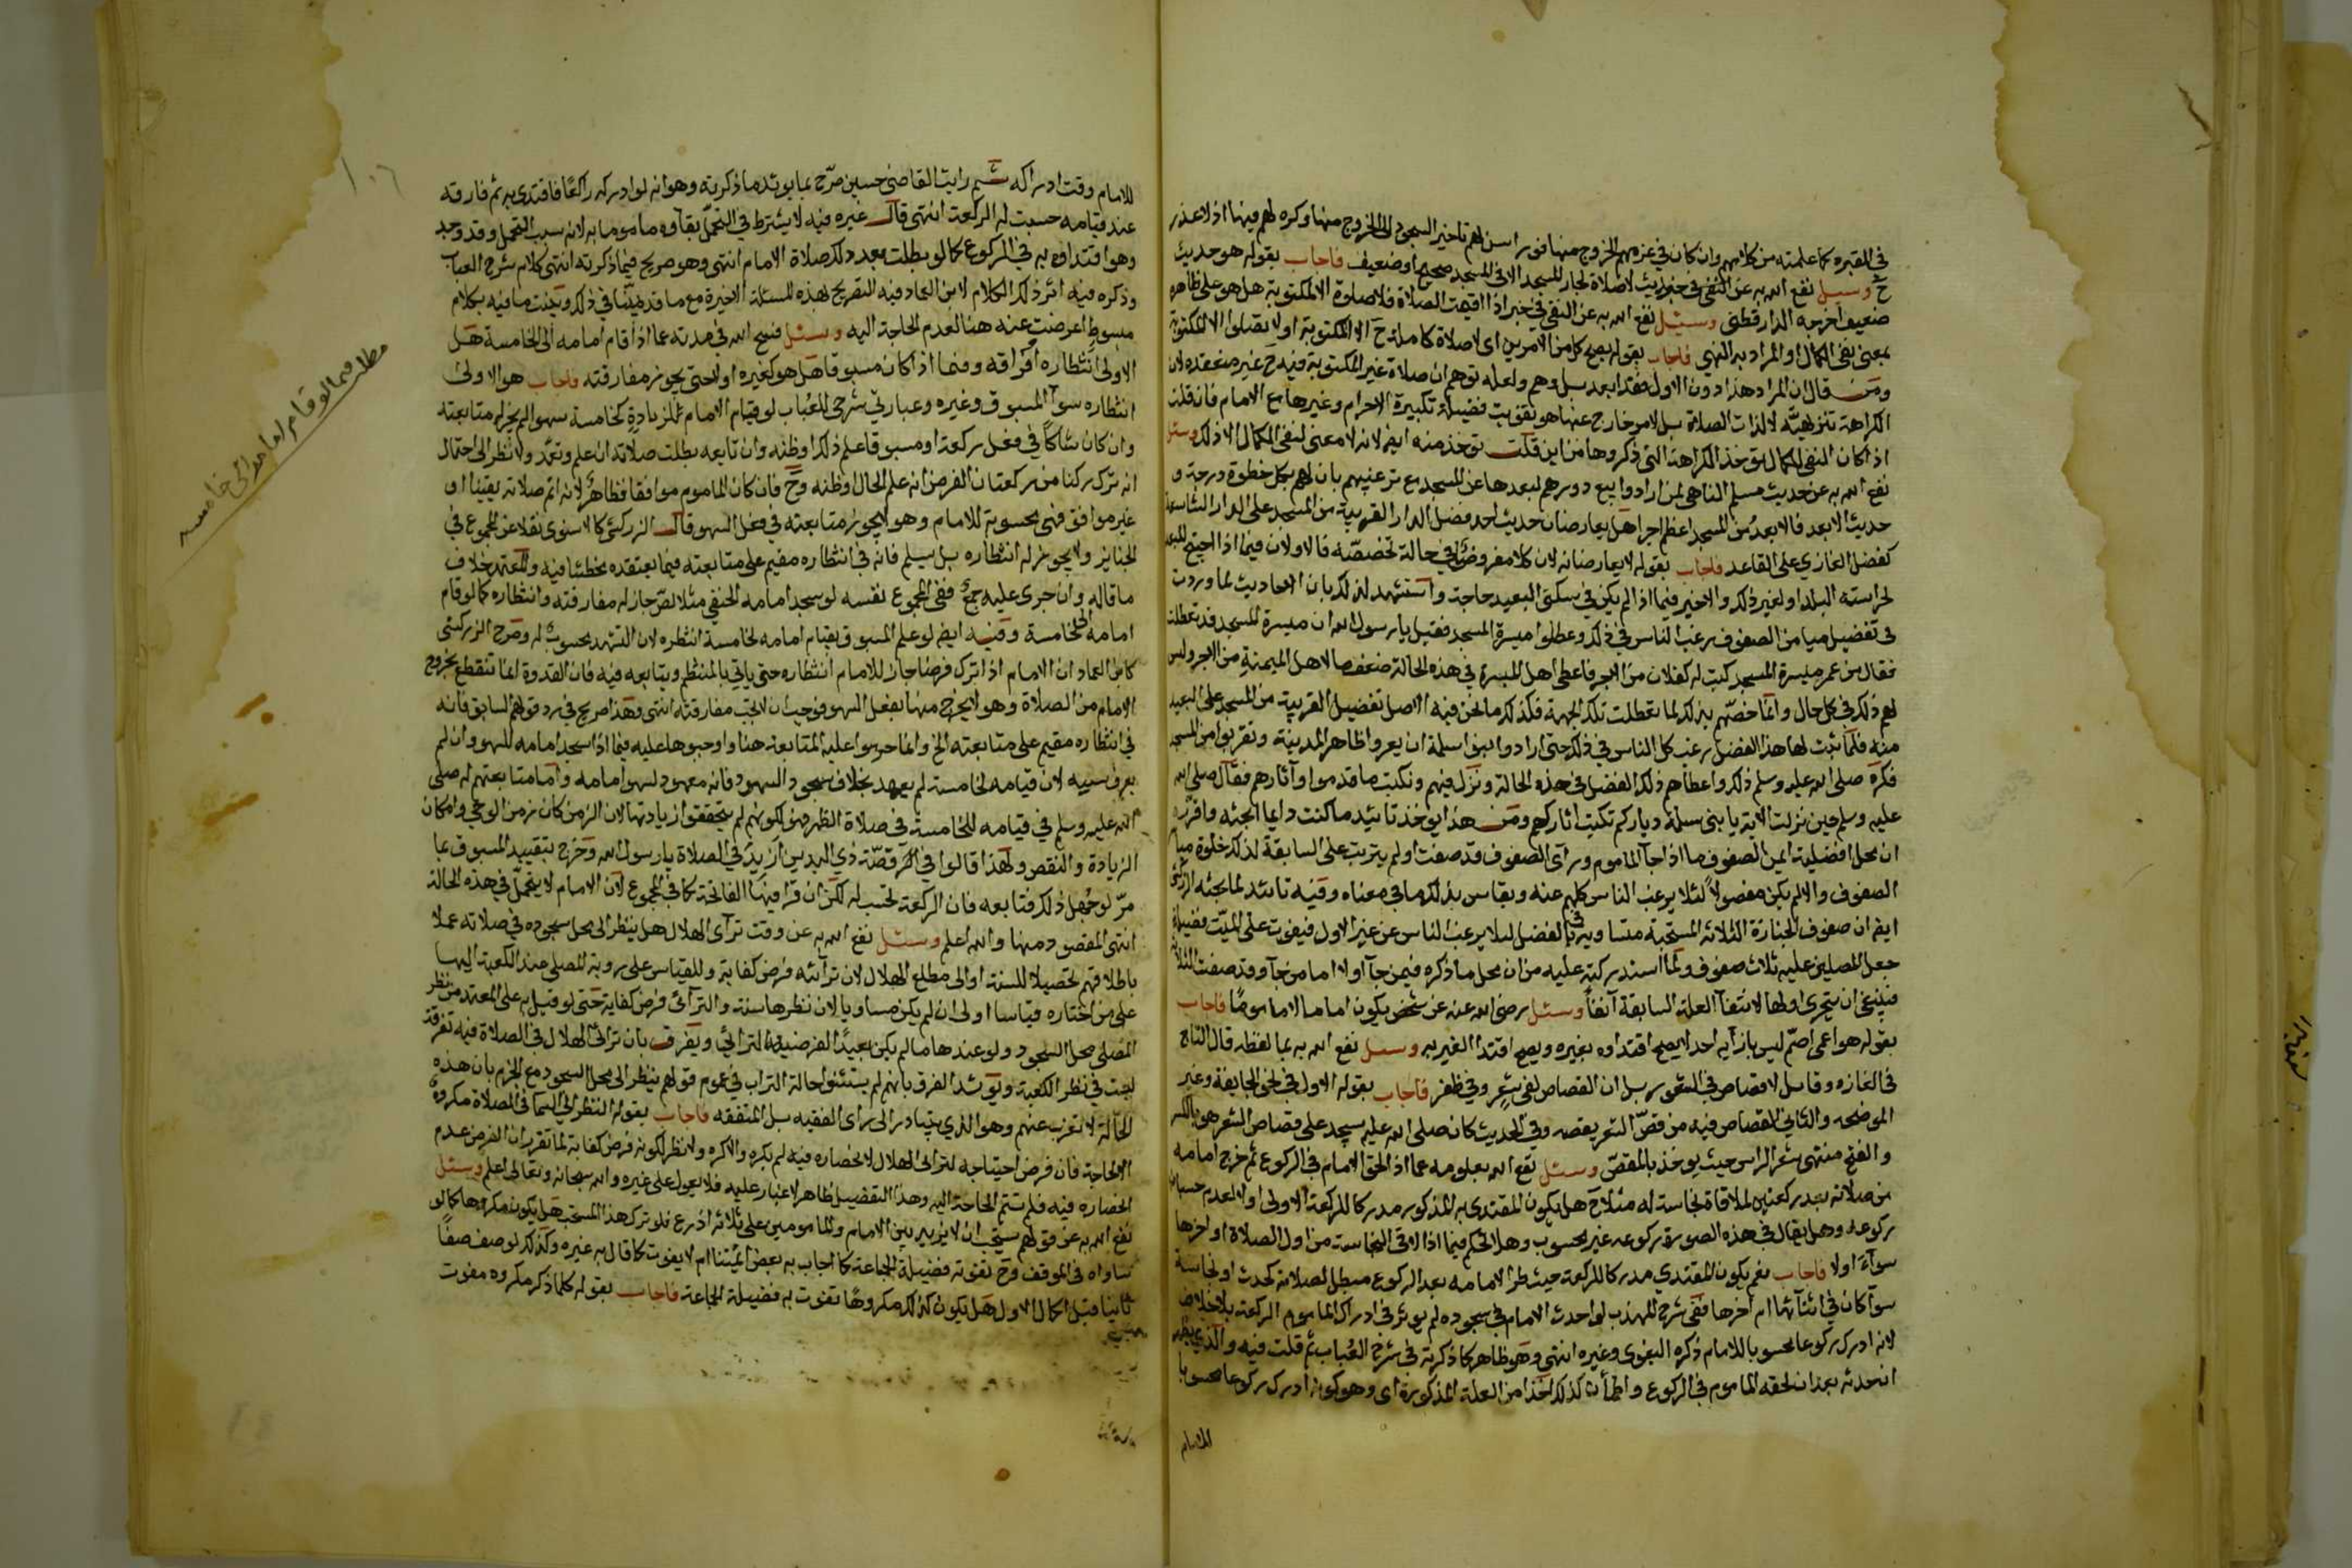 في المقبرة كما علمته من كلامهم وان كان في عزمهم الخروج منها فورا سن لهم تاخير السجود الى الخروج منها وكره لهم فيها اذ لا عذر
ح وسيل نفع الله به عن النفي في حديث لا صلاة لجار المسجد الا في المسجد صحيح او ضعيف فاجاب بقوله هو حديث
ضعيف اخرجه الدارقطني وسئل نفع الله به عن النفي في خبر اذا اقيمت الصلاة فلا صلاة الا المكتوبة هل هو على ظاهره
بمعنى نفي الكمال او المراد به النهي فاجاب بقوله يصح كل من الامرين اي لا صلاة كاملة ح الا المكتوبة او لا تصلوا الا المكتوبة
ومن قال ان المراد هذا دون الاول فقد ابعد بل وهم ولعله توهم ان صلاة غير المكتوبة فيه ح غير منعقدة لان
الكراهة تنزيهية لا لذات الصلاة بل لامر خارج عنها هو تفويت فضيلة تكبيرة الاحرام وغيرها مع الامام فان قلت
اذا كان النفي للكمال يؤخذ الكراهة التي ذكروها من اين قلت تؤخذ منه ايضا لانه لا معنى لنفي الكمال الا ذلك وسئل
نفع الله به عن حديث مسلم الناهي لمن ارادوا بيع دورهم لبعدها عن المسجد مع ترغيبهم بان لهم بكل خطوة درجة و
حديث الابعد فالابعد من المسجد اعظم اجرا هل يعارضان حديث احمد فضل الدار القريبة من المسجد على الدار الشاسعة
كفضل الغازي على القاعد فاجاب بقوله لا يعارضانه لان كلا مفروض في حالة تخصصه فالاولان فيما اذا احتيج للبعد
لحراسة البلد او لغير ذلك والاخير فيما اذا لم يكن في سكنى البعيد حاجة واستشهد لذلك بان الاحاديث لما وردت
في تفضيل ميامن الصفوف رغب الناس في ذلك وعطلوا ميسرة المسجد فقيل يا رسول الله ان ميسرة المسجد قد تعطلت
فقال من عمر ميسرة المسجد كتب له كفلان من الاجر فاعطى اهل الميسرة في هذه الحالة ضعف ما لاهل الميمنة من الاجر وليس
لهم ذلك في كل حال وانما خصهم بذلك لما تعطلت تلك الجهة فكذلك ما نحن فيه الاصل تفضيل القريبة من المسجد على البعيد
منه فلما ثبت لها هذا الفضل رغب كل الناس في ذلك حتى ارادوا بنو سلمة ان يعروا ظاهر المدينة وتقربوا من المسجد
فكره صلى الله عليه وسلم ذلك واعطاهم ذلك الفضل في هذه الحالة ونزل فيهم ونكتب ما قدموا وآثارهم فقال صلى الله
عليه وسلم حين نزلت الاية يا بني سلمة دياركم تكتب اثاركم ومن هذا يؤخذ تائيد ما كنت دايما ابحثه واقرره
ان محل افضلية ايمن الصفوف ما اذا جا الماموم وراى الصفوف قد صفت او لم يترتب على السابقة لذلك خلو ميا
الصفوف والا لم يكن مفضولا لئلا يرغب الناس كلهم عنه ويقاس بذلك ما في معناه وفيه تائيد لما بحثه الزركشي
ايضا ان صفوف الجنازة الثلاثة المستحبة متساوية في الفضل لئلا يرغب الناس عن غير الاول فيفوت على الميت فضيلة
جعل المصلين عليه ثلاث صفوف ولما استدركته عليه من ان محل ما ذكره فيمن جا اولا اما من جا وقد صفت الثلاثة
فينبغي ان يتحرى اولها لانتفا العلة السابقة آنفا وسئل رضي الله عنه عن شخص يكون اماما لا ماموما فاجاب
بقوله هو اعمى اصم ليس بازايه احد ايصح اقتداوه بغيره ويصح اقتدا الغير به وسيل نفع الله به بما لفظه قال التاج
في الغازه وقايل لا قصاص في الشعور بل ان القصاص لفي شعر وفي ظفر فاجاب بقوله الاول في نحو الجايفة وغير
الموضحة والثاني القصاص فيه من قص الشعر يقصه وفي الحديث كان صلى الله عليه يسجد على قصاص الشعر هو بالكسر
والفتح منتهى شعر الراس حيث يوخذ بالمقص وسئل نفع الله بعلومه عما اذا لحق الامام في الركوع ثم خرج امامه
من صلاته بعد ركعتين لملاقاة نجاسة له مثلا ح هل يكون المقتدي به المذكور مدركا للركعة الاولى او لا لعدم حسبان
ركوعه وهل يقال في هذه الصورة ركوعه غير محسوب وهل الحكم فيما اذا لاقى النجاسة من اول الصلاة او اخرها
سوآء اولا فاجاب نعم يكون المقتدي مدركا للركعة حيث طرا لامامه بعد الركوع مبطل لصلاته كحدث او نجاسة
سوآ كان في اثنائها ام اخرها ففي شرح المهذب لو احدث الامام في سجوده لم يوثر في ادراك الماموم الركعة بلا خلاف
لانه ادرك ركوعا محسوبا للامام ذكره البغوي وغيره انتهى وهو ظاهر كما ذكرته في شرح العباب ثم قلت فيه والذي يظهر
ان حدثه بعد ان لحقه الماموم في الركوع واطمأن كذلك اخذا من العلة المذكورة اي وهو كونه ادرك ركوعا محسوبا
للامام
للامام وقت ادراكه ثم رايت القاضي حسين صرح بما يويد ما ذكرته وهو انه لو ادركه راكعا فاقتدى به ثم فارقه
عند قيامه حسبت له الركعة انتهى قال غيره فيه لا يشترط في التحمل بقاوه ماموما به لانه سبب التحمل وقد وجد
وهو اقتداوه به في الركوع كما لو بطلت بعد ذلك صلاة الامام انتهى وهو صريح فيما ذكرته انتهى كلام شرح العباب
وذكره فيه اثر ذلك الكلام لابن العماد فيه التصريح بهذه المسئلة الاخيرة مع ما قد يمنّا في ذلك وبينت ما فيه بكلام
مبسوط اعرضت عنه هنا لعدم الحاجة اليه وسئل فسح الله في مدته عما اذا قام امامه الى الخامسة هل
الاولى انتظاره ام فراقه وفيما اذا كان مسبوقا هل هو كغيره اولا حتى يجوز مفارقته فاجاب هو الاولى
انتظاره سوآ المسبوق وغيره وعبارتي شرحي للعباب لو قام الامام لزيادة كخامسة سهوا لم يجز له متابعته
وان كان شاكا في فعل ركعة او مسبوقا علم ذلك او ظنه وان تابعه بطلت صلاته ان علم وتعمد ولا نظر الى احتمال
انه ترك ركنا من ركعة لان الفرض انه علم الحال او ظنه وح فان كان الماموم موافقا فظاهر لانه اتم صلاته يقينا او
غير موافق فهي محسوبة للامام وهو لا يجوز متابعته في فعل السهو قال الزركشي كالاسنوي نقلا عن المجموع في
الجنايز ولا يجوز له انتظاره بل يسلم فانه في انتظاره مقيم على متابعته فيما يعتقده مخطئا فيه والمعتمد خلاف
ما قاله وان جرى عليه جمع ففي المجموع نفسه لو سجد امامه الحنفي مثلا لص جاز له مفارقته وانتظاره كما لو قام
امامه الى خامسة وفيه ايضا لو علم المسبوق بقيام امامه لخامسة انتظره لان التشهد محسوب له وصرح الزركشي
كابن العماد ان الامام اذا ترك فرضا جاز للامام انتظاره حتى ياتي بالمنتظم ويتابعه فيه فان القدوة انما تنقطع بخروج
الامام من الصلاة وهو لا يخرج منها بفعل السهو فوجب ان لا يجب مفارقته انتهى وهذا صريح في رد قولهم السابق فانه
في انتظاره مقيم على متابعته الخ وانما حرموا عليه المتابعة هنا واوجبوها عليه فيما اذا سجد امامه للسهو وان لم
يعرف سببه لان قيامه لخامسة لم يعهد بخلاف سجود السهو فانه معهود لسهو امامه واما متابعتهم له صلى
الله عليه وسلم في قيامه للخامسة في صلاة الظهر فهو لكونهم لم يتحققوا زيادتها لان الزمن كان زمن الوحي وامكان
الزيادة والنقص ولهذا قالوا في قصة ذي اليدين ازيد في الصلاة يا رسول الله وخرج بتقييد المسبوق بما
مر لو جهل ذلك فتابعه فان الركعة تحسب له لكن ان قرا فيها الفاتحة كما في المجموع لان الامام لا يتحمل في هذه الحالة
انتهى المقصود منها والله اعلم وسئل نفع الله به عن وقت ترآى الهلال هل ينظر الى محل سجوده في صلاته عملا
باطلاقهم تحصيلا للسنة او الى مطلع الهلال لان ترآئه فرض كفاية وللقياس على روية المصلي عند الكعبة اليها
على من اختاره قياسا اولى ان لم يكن مساويا لان نظرها سنة والترآئ فرض كفاية حتى لو قيل به على المعتمد من نظر
المصلي محل السجود ولو عندها ما لم يكن بعيدا لفرضية الترائي ويفرق بان ترائي الهلال في الصلاة فيه تفرقة
ليست في نظر الكعبة ويؤيد الفرق بانهم لم يستثنوا حالة التراب في عموم قولهم ينظر الى محل السجود مع الجزم بان هذه
الحالة لا تغرب عنهم وهو الذي يتبادر الى راي الفقيه بل المتفقه فاجاب بقوله النظر الى السما في الصلاة مكروه
الا لحاجة فان فرض احتياجه لترائي الهلال لانحصاره فيه لم يكره والا كره ولا نظر لكونه فرض كفاية لما تقرر ان الفرض عدم
انحصاره فيه فلم تتم الحاجة اليه وهذا التفضيل ظاهر لا غبار عليه فلا يعول على غيره والله سبحانه وتعالى اعلم وسئل
نفع الله به عن قولهم يستحب ان لا يزيد بين الامام والمامومين على ثلاثة اذرع فلو ترك هذا المستحب هل يكون مكروها كما لو
ساواه في الموقف وح تفوته فضيلة الجماعة كما اجاب به بعض ائمتنا ام لا يفوت كما قال به غيره وكذلك لو صف صفا
ثانيا قبل اكمال الاول هل يكون كذلك مكروها تفوت به فضيلة الجماعة فاجاب بقوله كلما ذكر مكروه مفوت
مطلب فيما لو قام امامه الى خامسه
١٠٦